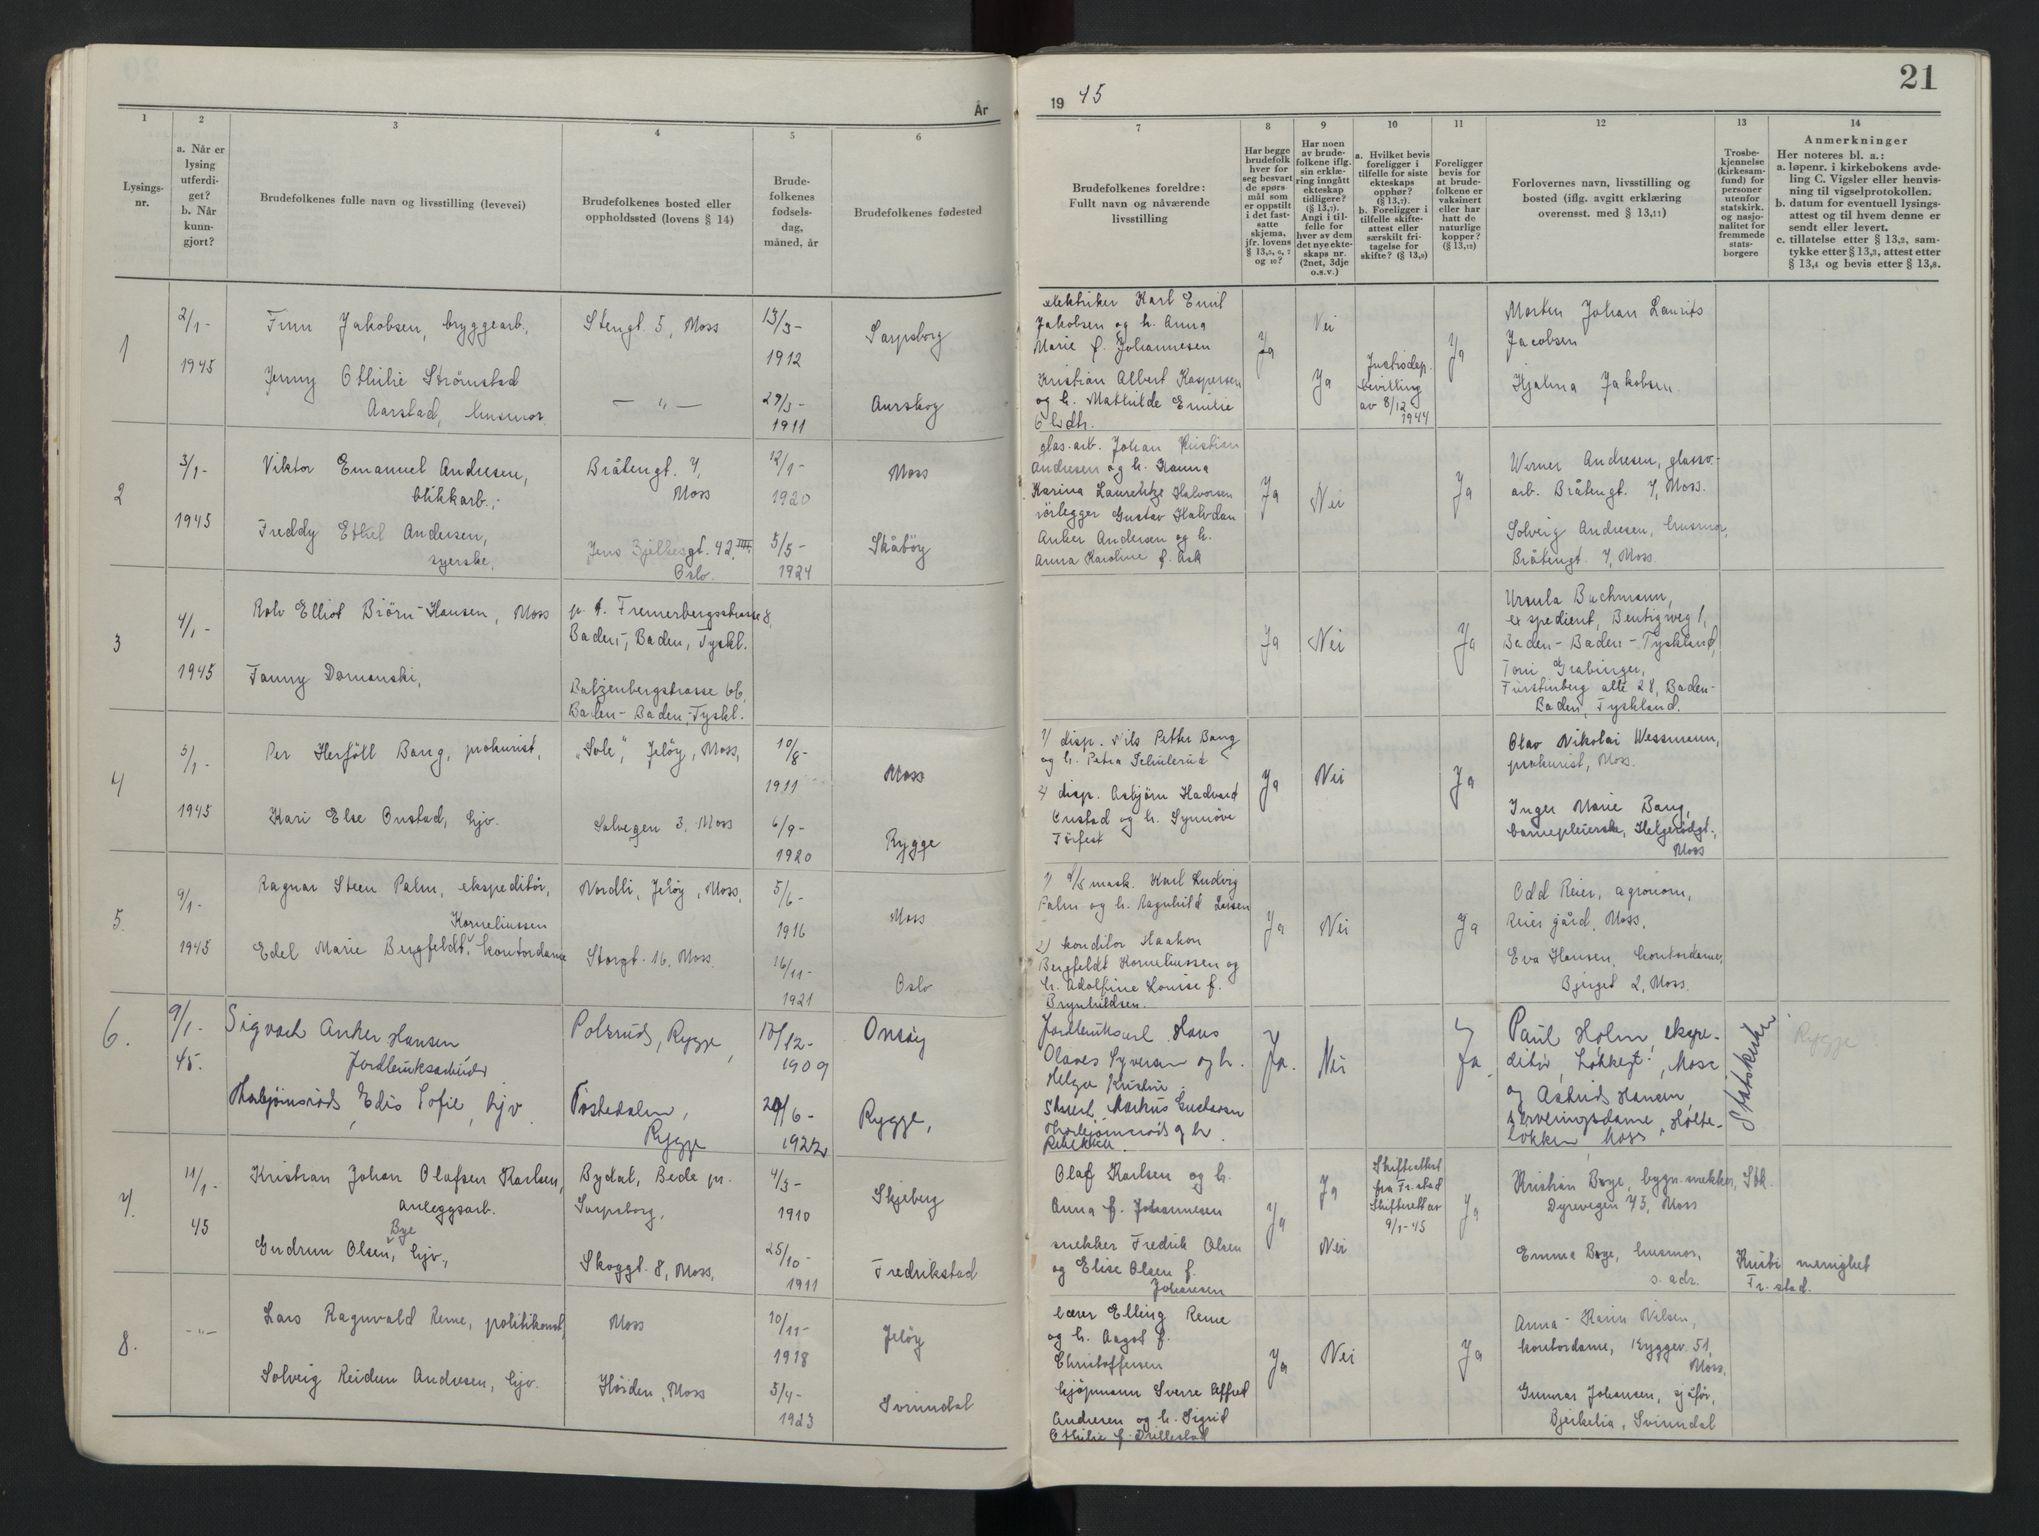 År
19 45
21
1
2
3
4
5
6
7
8
9
10
11
12
13
14
Lysings-
nr.
a. Når er
lysing
utferdi-
get?
b. Når
kunn-
gjort?
Brudefolkenes fulle navn og livsstilling (levevei)
Brudefolkenes bosted eller
oppholdssted (lovens § 14)
Brude-
folkenes
fødsels-
dag,
måned, år
Brudefolkenes fødested
Brudefolkenes foreldre:
Fullt navn og nåværende
livsstilling
Har begge
brudefolk
hver for
seg besvart
de spørs-
mål som
er oppstilt
i det fast-
satte
skjema,
jfr. lovens
§ 13,5, 6, 7
og 10?
Har noen
av brude-
folkene iflg.
sin erklæ-
ring inngått
ekteskap
tidligere?
(§ 13,7).
Angi i til-
felle for
hver av dem
det nye ekte-
skaps nr.
(2net, 3dje
o.s.v.)
a. Hvilket bevis
foreligger i
tilfelle for siste
ekteskaps
opphør?
(§ 13,7).
b. Foreligger i
tilfelle skifte-
attest eller
særskilt fri-
tagelse for
skifte? (§ 13,9)
Foreligger
bevis for
at brude-
folkene er
vaksinert
eller har
hatt de
naturlige
kopper?
(§ 13,12)
Forlovernes navn, livsstilling og
bosted (iflg. avgitt erklæring
overensst. med § 13,11)
Trosbe-
kjennelse
(kirkesam-
fund) for
personer
utenfor
statskirk.
og nasjo-
nalitet for
fremmede
stats-
borgere
Anmerkninger
Her noteres bl. a.:
a. løpenr. i kirkebokens avde-
ling C. Vigsler eller henvis-
ning til vigselprotokollen.
b. datum for eventuell lysings-
attest og til hvem denne er
sendt eller levert.
c. tillatelse etter § 13,2, sam-
tykke etter § 13,3, attest etter
§ 13,4 og bevis etter § 13,8.
1
2/1-
1945
Finn Jakobsen, bryggearb.,
Jenny Othilie Strømstad
Aarstad, husmor
Stengt. 5, Moss
— „ —
13/3-
1912
29/3-
1911
Sarpsborg
Aurskog
elektriker Karl Emil
Jakobsen og h. Anna
Marie f. Johannesen
Kristian Albert Kaspersen
og h. Mathilde Emilie
Ja
Nei
Ja
Justisdep.
bevilling
av 8/12
1944
Ja
Morten Johan Laurits
Jacobsen
Hjalma Jakobsen.
2
3/1-
1945
Viktor Emanuel Andresen,
blikkarb.,
Freddy Ethel Andersen,
syerske,
Bråtengt. 7,
Moss
Jens Bjelkesgt. 42 IIII.
Oslo.
12/1-
1920
5/5-
1924
Moss
Skåbøy
glas.arb. Johan Kristian
Andresen og h. Hanna
Karina Laurentze Halvorsen
rørlegger Gustav Halvdan
Anker Andersen og h.
Anna Karoline f. Ask
Ja
Nei
Ja
Werner Andresen, glassv.-
arb. Bråtengt. 7, Moss.
Solveig Andresen, husmor,
Bråtengt. 7, Moss.
3
4/1-
1945
Rolv Elliot Biørn-Hansen, Moss
Fanny Domanski,
p. t. Fremerbergsstrasse 8,
Baden-, Baden, Tyskl.
Balzenbergstrasse 66,
Baden-Baden, Tyskl.
Ja
Nei
Ja
Ursula Buchmann,
ekspedient, Bentigweg 1,
Baden-Baden-Tyskland,
Toni Grabinger,
Fürstinberg alle 28, Baden-
Baden, Tyskland.
4
5/1-
1945
Per Herføll Bang, prokurist,
Kari Else Onstad, hjv.
„Sole", Jeløy, Moss,
Solvegen 3, Moss
10/8-
1911
6/9-
1920
Moss
Rygge
1/ disp. Nils Petter Bang
og h. Petra Schulerud
2/ disp. Asbjørn Hadvard
Onstad og h. Synnøve
Førfest
Ja
Nei
Ja
Olav Nikolai Wessmann,
prokurist, Moss.
Inger Marie Bang,
barnepleierske, Helgerødgt.,
Moss
5.
9/1-
1945
Ragnar Steen Palm, ekspeditør,
Korneliussen
Edel Marie Bergfeldt, kontordame
Nordli, Jeløy, Moss,
Storgt. 16, Moss.
5/6-
1916
16/11-
1921
Moss
Oslo
1/ d/s mask. Karl Ludvig
Palm og h. Ragnhild Larsen
2) konditor Haakon
Bergfeldt Korneliussen og
h. Adolfine Louise f.
Brynhildsen.
Ja
Nei
Ja
Odd Reier, agronom,
Reier gård, Moss.
Eva Hansen, kontordame,
Bjerget 2, Moss.
6.
9/1-
45.
Sigvart Anker Hansen
Jordbruksarbeider
Thorbjørnsrøds, Edis Sofie, hjv.
Polsrud, Rygge,
Tostedalen,
Rygge
17/12-
1909
20/6-
1922
Onsøy
Rygge,
Jordbruksarb. Hans
Olaves Syversen og h.
Helga Kristine
Markus Gustavsen
Thorbjørnsrøds og h.
Rebekka.
Ja.
Nei
Ja.
Paul Holm, ekspe-
ditør, Løkkegt., Moss
og Astrid Hansen,
serveringsdame, Holte-
løkken Moss
Statskirken
Rygge
7.
11/1-
45
Kristian Johan Olafsen Karlsen,
anleggsarb.
Bye
Gudrun Olsen, hjv.,
Bydal, Bede pr.
Sarpsborg,
Skoggt. 8, Moss,
4/3-
1910
25/10-
1911
Skjeberg
Fredrikstad
Olaf Karlsen og h.
Anna f. Johannesen
snekker Fredrik Olsen
og Elise Olsen f.
Johansen
Ja
Ja
Nei
Skifteattest
fra Fr.stad
Skifterett av
9/1-45
Ja
Kristian Bøye, bygn.snekker,
Dyrevegen 73, Moss
Emma Bøye, husmor,
s. adr.
Stk.
Kristi menighet
Fr.stad.
8.
-„-
Lars Ragnvald Reme, politikonst,
Solveig Reidun Andresen, hjv.
Moss
Høiden, Moss
10/11-
1918
5/4-
1923
Jeløy
Svinndal
lærer Elling Reme
og h. Aagot f.
Christoffersen
kjøpmann Sverre Alfred
Andresen og h. Sigrid
Othilie f. Trillestad
Ja
Nei
Ja
Anna-Karin Nilsen,
kontordame, Ryggev. 51,
Moss.
Gunnar Johansen, sjåfør,
Bjerkelia, Svinndal